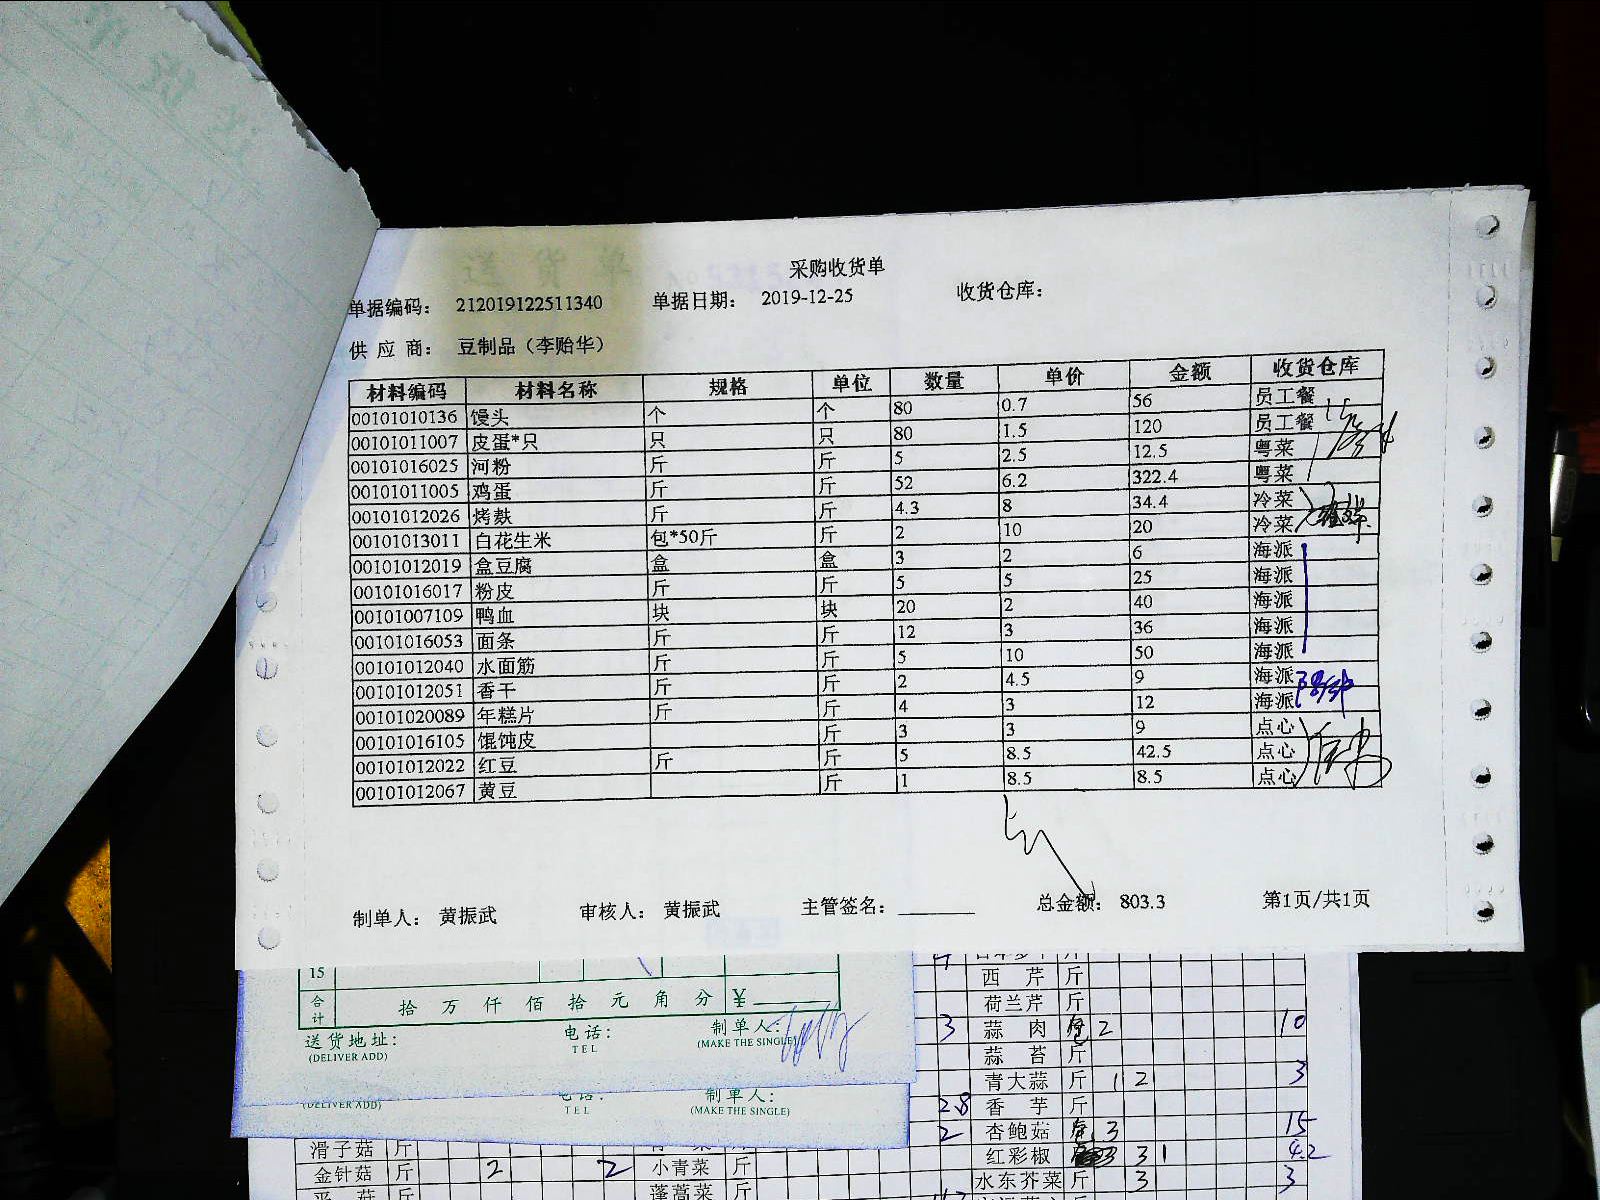 采购收货单
单据编码： 212019122511340 单据日期： 2019-12-25 收货仓库：
供 应 商： 豆制品（李贻华）
材料编码 材料名称 规格 单位 数量 单价 金额 收货仓库
00101010136 馒头 个 个 80 0.7 56 员工餐
00101011007 皮蛋*只 只 只 80 1.5 120 员工餐
00101016025 河粉 斤 斤 5 2.5 12.5 粤菜
00101011005 鸡蛋 斤 斤 52 6.2 322.4 粤菜
00101012026 烤麸 斤 斤 4.3 8 34.4 冷菜
00101013011 白花生米 包*50斤 斤 2 10 20 冷菜
00101012019 盒豆腐 盒 盒 3 2 6 海派
00101016017 粉皮 斤 斤 5 5 25 海派
00101007109 鸭血 块 块 20 2 40 海派
00101016053 面条 斤 斤 12 3 36 海派
00101012040 水面筋 斤 斤 5 10 50 海派
00101012051 香干 斤 斤 2 4.5 9 海派
00101020089 年糕片 斤 斤 4 3 12 海派
00101016105 馄饨皮 斤 3 3 9 点心
00101012022 红豆 斤 斤 5 8.5 42.5 点心
00101012067 黄豆 斤 1 8.5 8.5 点心
制单人： 黄振武 审核人： 黄振武 主管签名： 总金额： 803.3 第1页/共1页
15
合计 拾 万 仟 佰 拾 元 角 分 ¥
送货地址： 电话： 制单人：
(DELIVER ADD) TEL (MAKE THE SINGLE)
制单人：
(DELIVER ADD) TEL (MAKE THE SINGLE)
西 芹 斤
荷兰芹 斤
3 蒜 肉 2 10
蒜 苔 斤
青大蒜 斤 1 2 3
2.8 香 芋 斤
2 杏鲍菇 3 15
红彩椒 3 1 4.2
水东芥菜 斤 3 3
滑子菇 斤
金针菇 斤 2 2 小青菜 斤
蓬蒿菜 斤